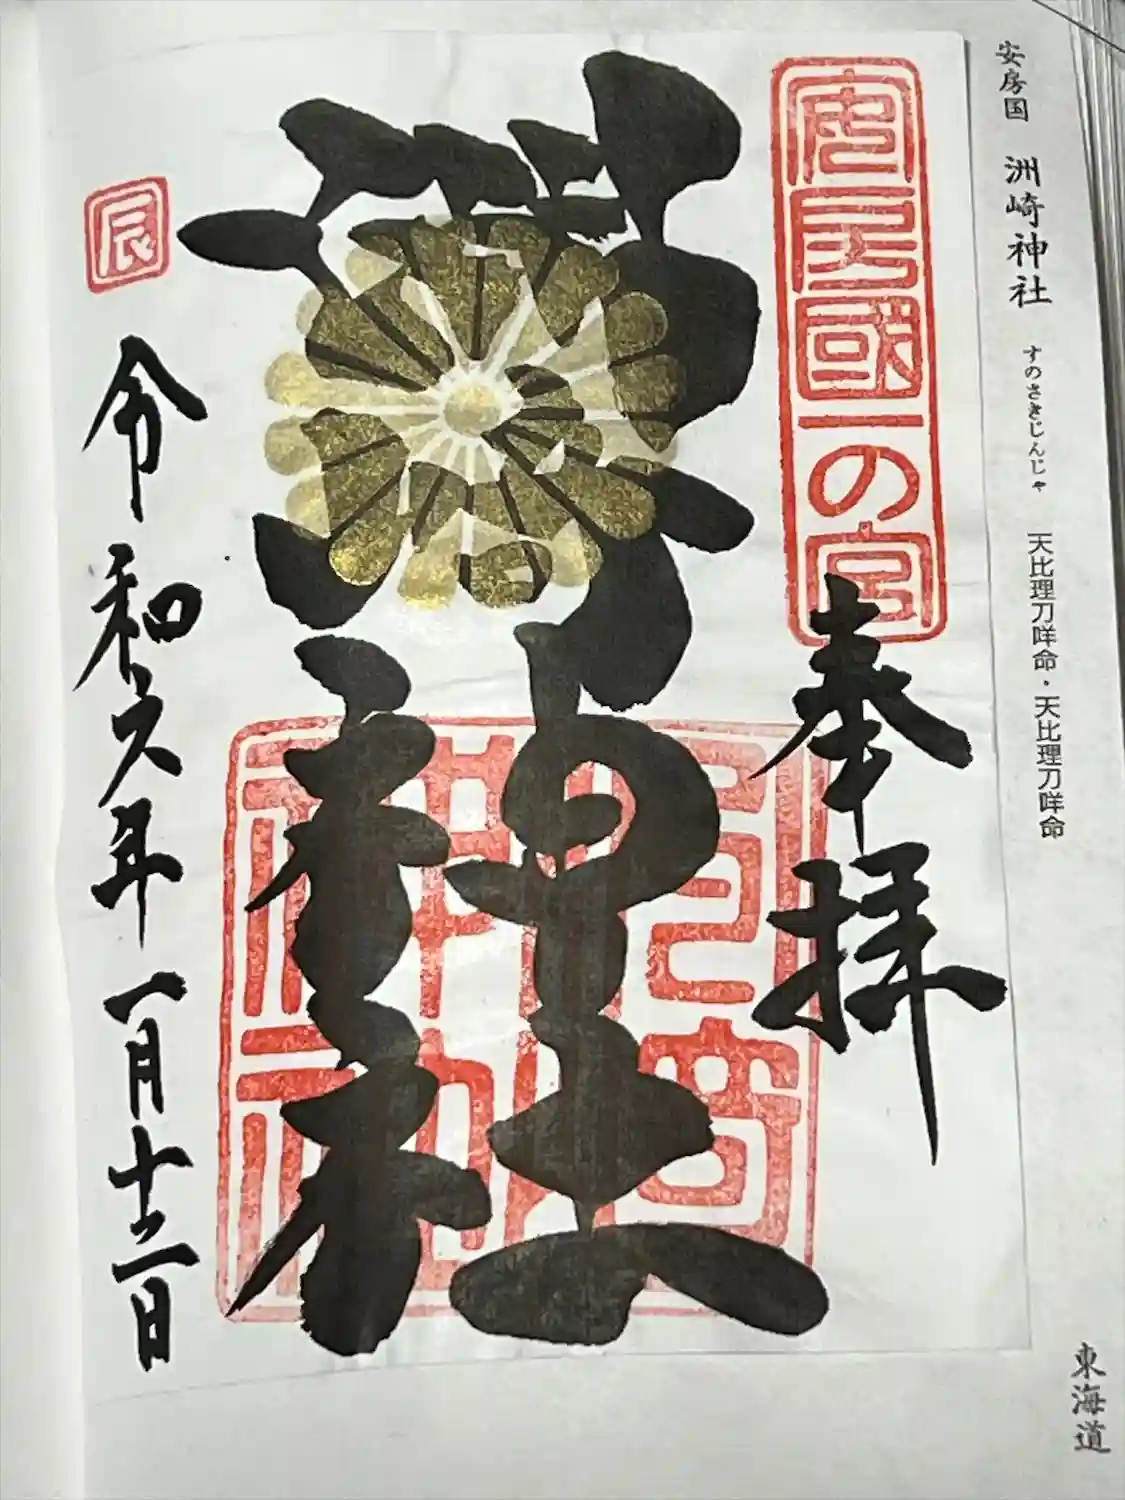 安房国 洲崎神社 すのさきじんじゃ 天比理刀咩命・天比理刀咩命
東海道
安房國一の宮
奉拝
洲崎神社
洲崎神社
令和六年一月十二日
辰